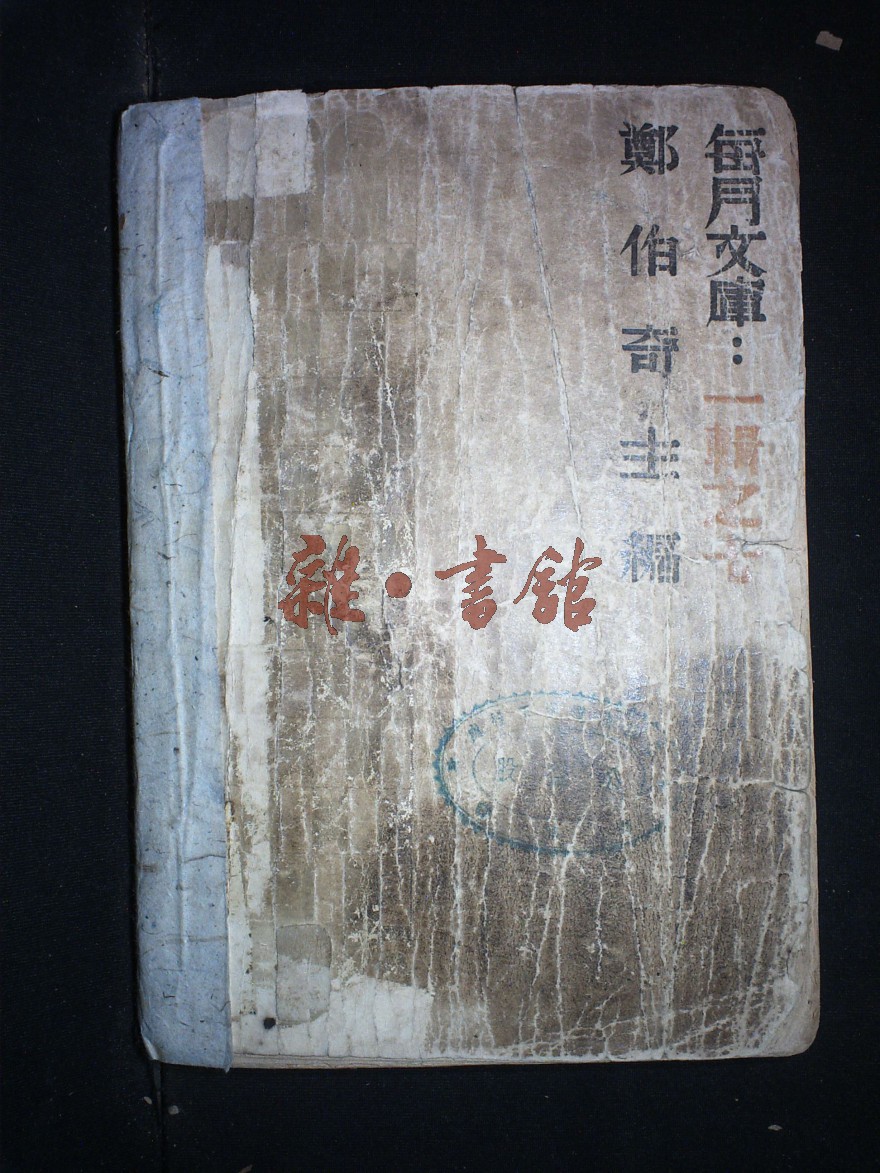 每月文庫：一輯之
鄭伯奇主編
雜·書館
股